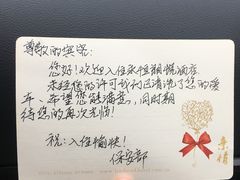 尊敬的宾客:
您好!欢迎入住永恒朗悦酒店
未经您的许可我们已清洗了您的爱
车、希望您能满意,同时期
待您的再次光临!
祝:入住愉快!
保安部
幸情